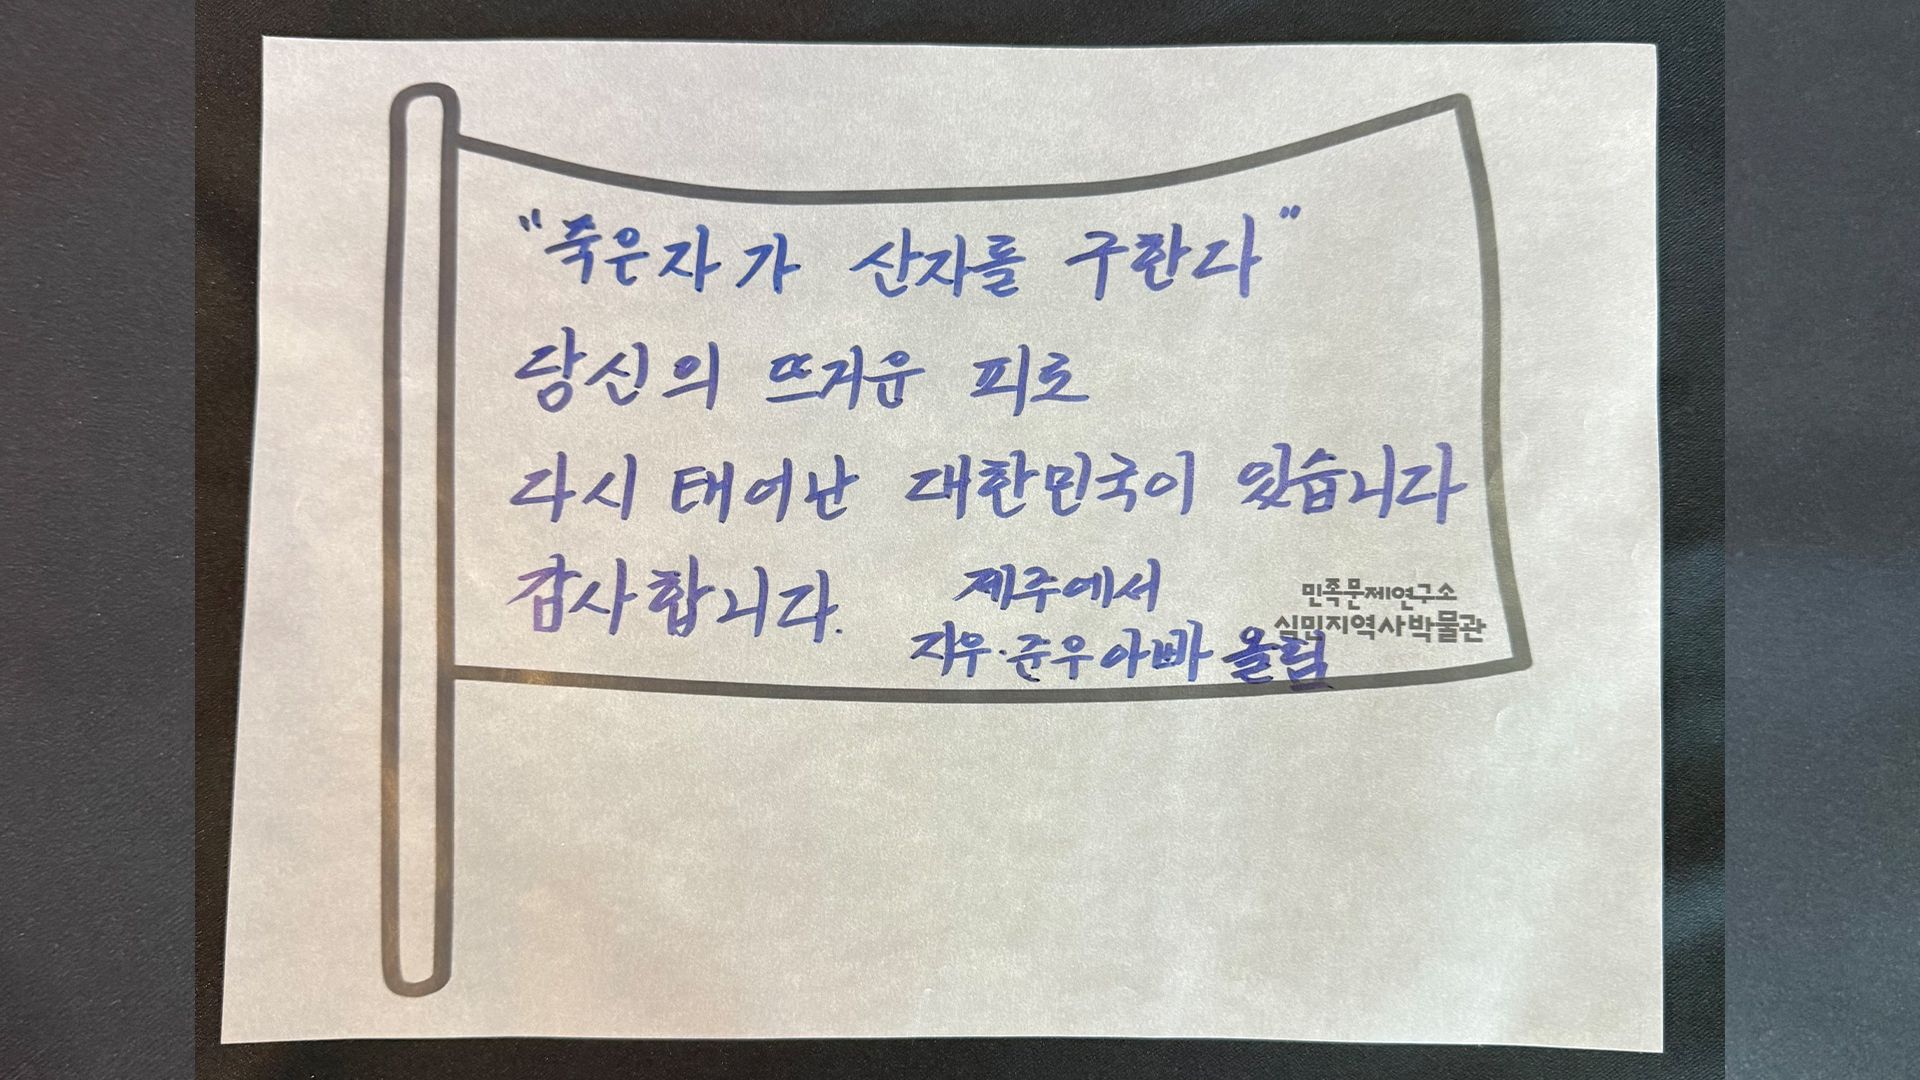 "죽은자가 산자를 구한다"
당신의 뜨거운 피로
다시 태어난 대한민국이 있습니다
감사합니다.
제주에서
지우·준우 아빠 올림
민족문제연구소
식민지역사박물관